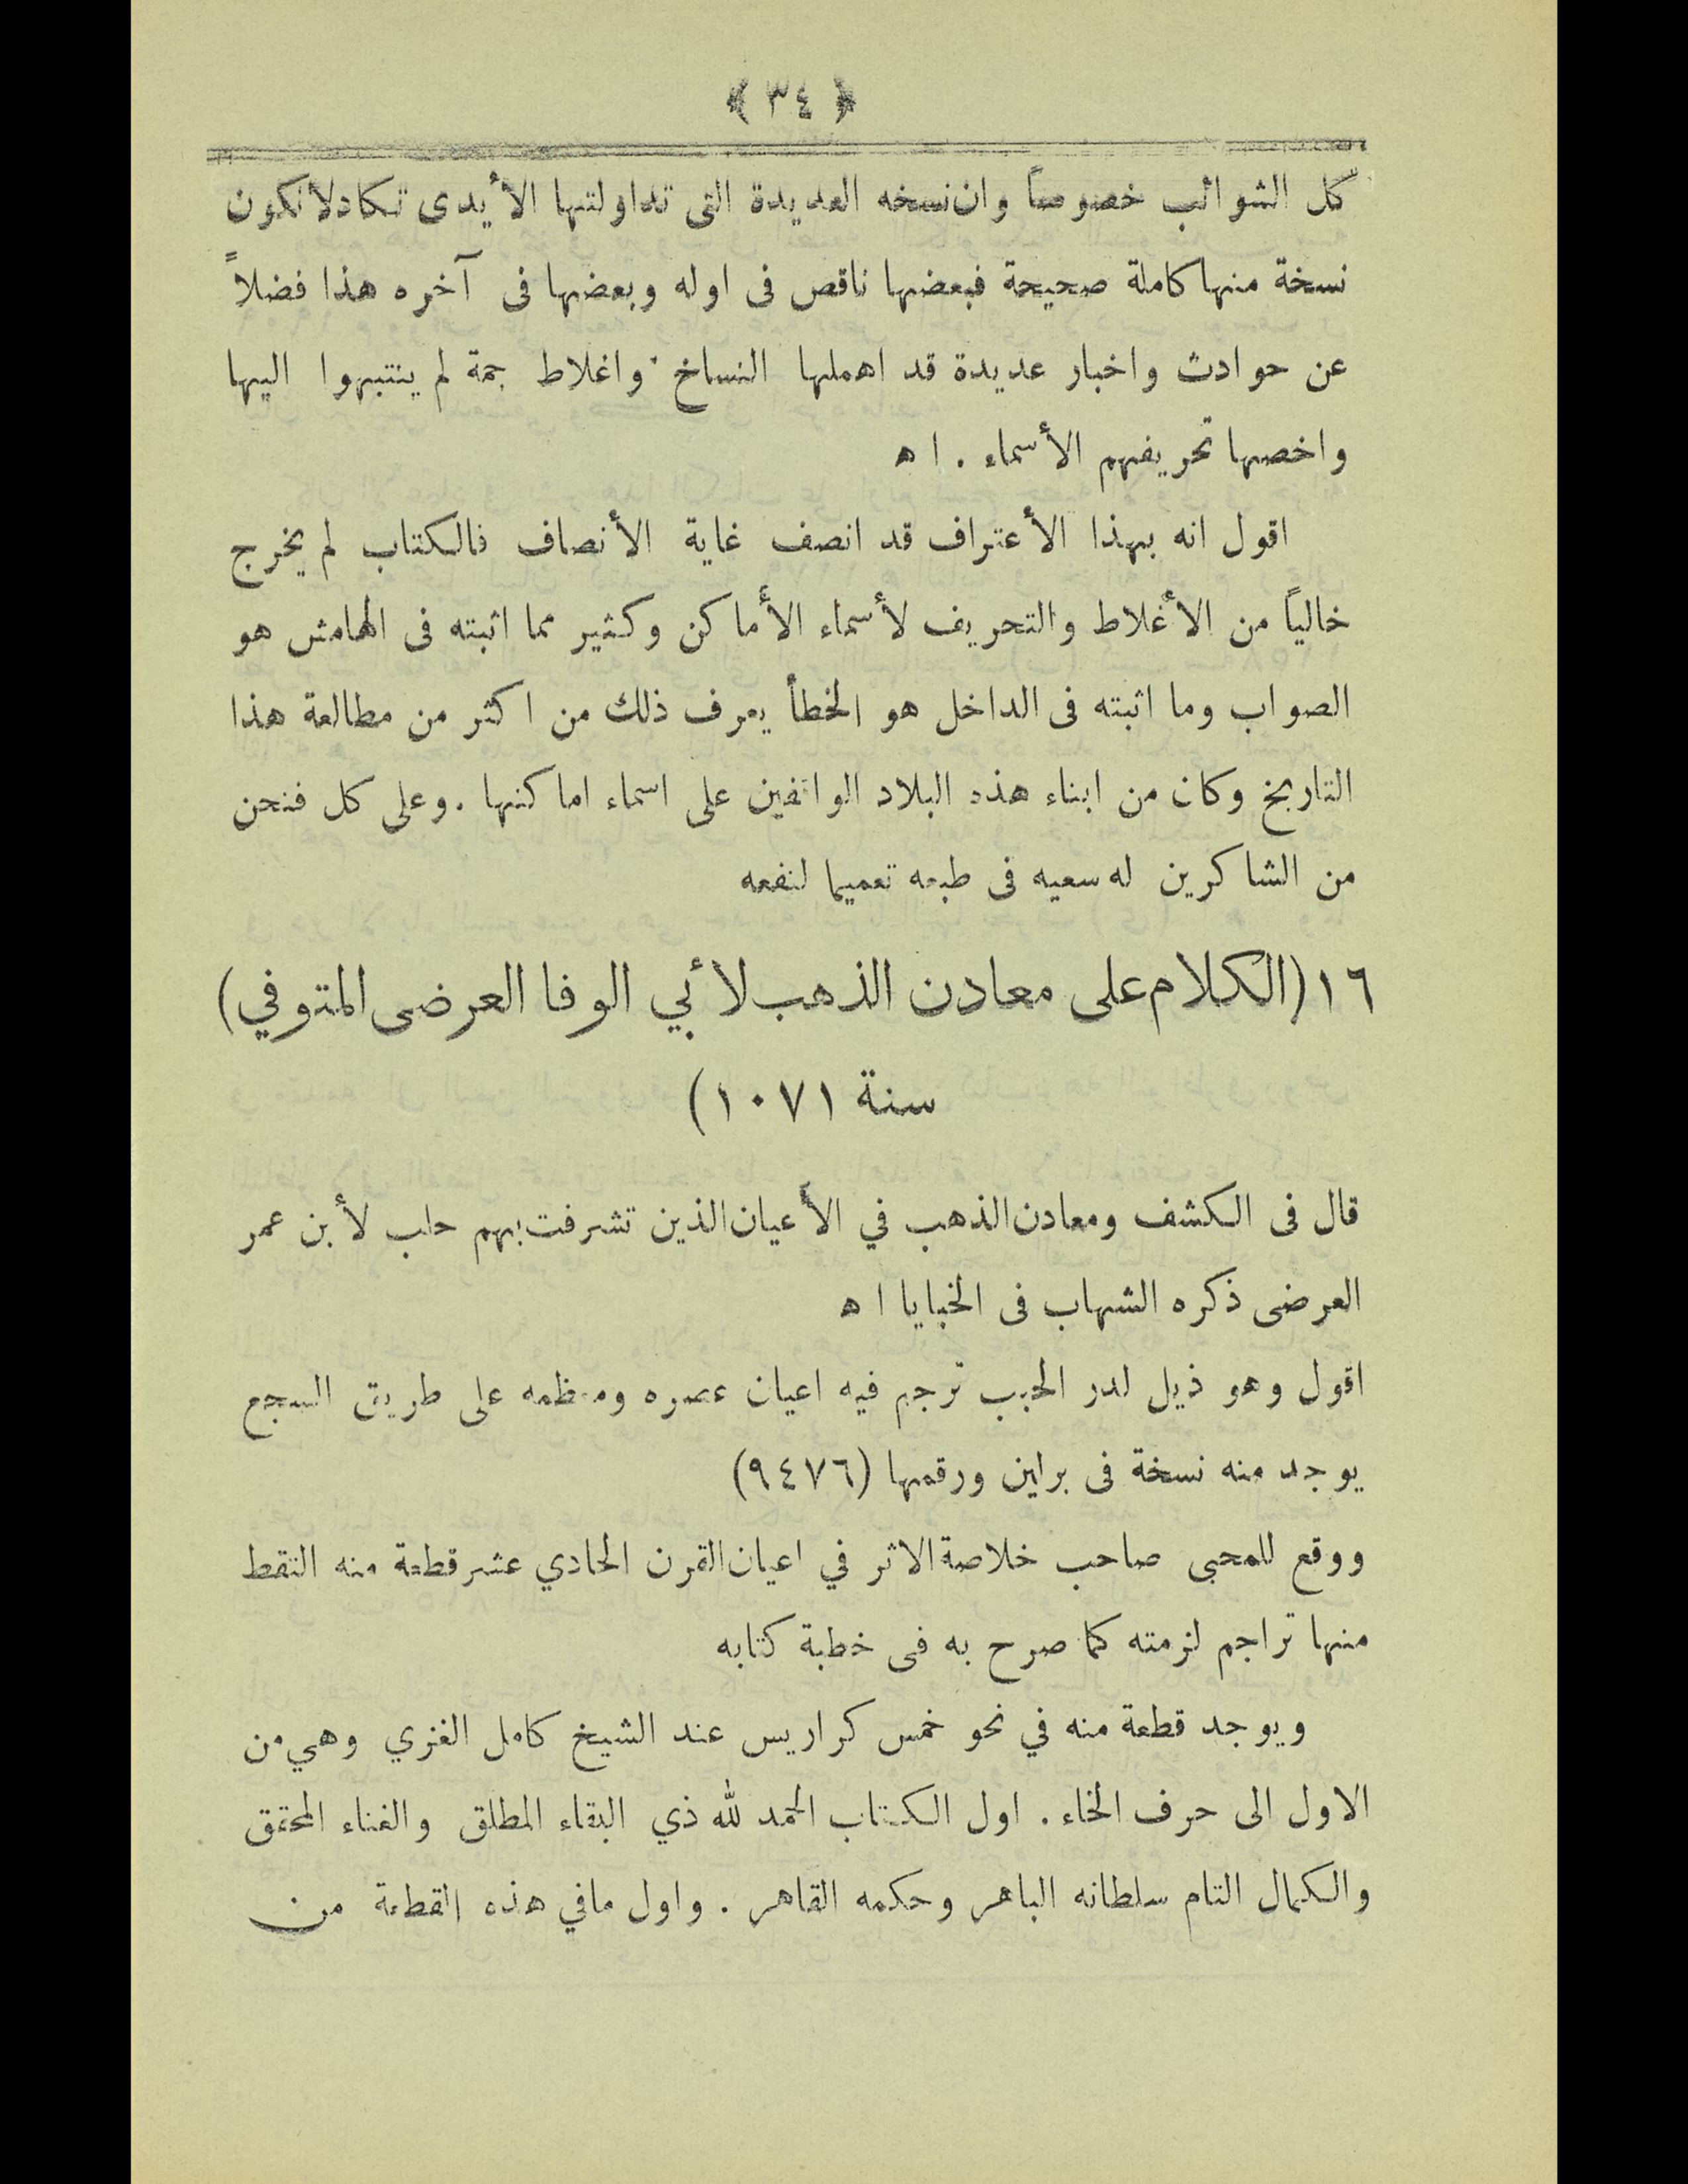 ﴿ ٣٤ ﴾
كل الشوائب خصوصاً وان نسخه العديدة التى تداولتها الأيدى تكاد لا تكون
نسخة منها كاملة صحيحة فبعضها ناقص فى اوله وبعضها فى آخره هذا فضلاً
عن حوادث واخبار عديدة قد اهملها النساخ واغلاط جمة لم ينتبهوا اليها
واخصها تحريفهم الأسماء . ا ه
اقول انه بهذا الأعتراف قد انصف غاية الأنصاف فالكتاب لم يخرج
خالياً من الأغلاط والتحريف لأسماء الأماكن وكثير مما اثبته فى الهامش هو
الصواب وما اثبته فى الداخل هو الخطأ يعرف ذلك من اكثر من مطالعة هذا
التاريخ وكان من ابناء هذه البلاد الواقفين على اسماء اماكنها . وعلى كل فنحن
من الشاكرين له سعيه فى طبعه تعميما لنفعه
١٦ (الكلام على معادن الذهب لأبي الوفا العرضى المتوفي)
سنة ١٠٧١)
قال فى الكشف ومعادن الذهب في الأعيان الذين تشرفت بهم حلب لأبن عمر
العرضى ذكره الشهاب فى الخبايا ا ه
اقول وهو ذيل لدر الحبب ترجم فيه اعيان عصره ومعظمه على طريق السجع
يوجد منه نسخة فى برلين ورقمها (٩٤٧٦)
ووقع للمحبى صاحب خلاصة الاثر في اعيان القرن الحادي عشر قطعة منه التقط
منها تراجم لزمته كما صرح به فى خطبة كتابه
ويوجد قطعة منه في نحو خمس كراريس عند الشيخ كامل الغزي وهي من
الاول الى حرف الخاء . اول الكتاب الحمد لله ذي البقاء المطلق والغناء المحقق
والكمال التام سلطانه الباهر وحكمه القاهر . واول مافي هذه القطعة من